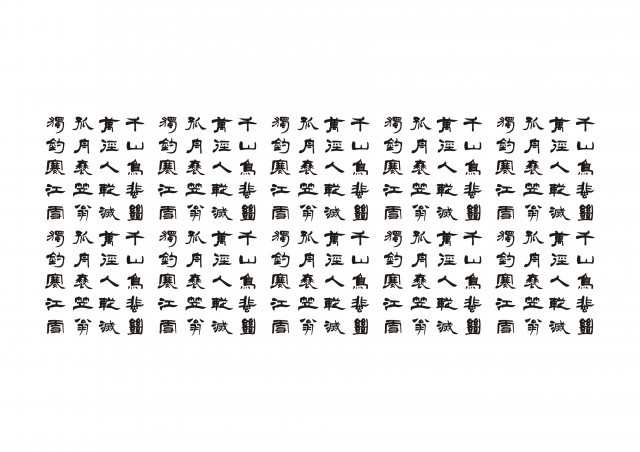 千山鳥飛絕
萬徑人蹤滅
孤舟蓑笠翁
獨釣寒江雪
千山鳥飛絕
萬徑人蹤滅
孤舟蓑笠翁
獨釣寒江雪
千山鳥飛絕
萬徑人蹤滅
孤舟蓑笠翁
獨釣寒江雪
千山鳥飛絕
萬徑人蹤滅
孤舟蓑笠翁
獨釣寒江雪
千山鳥飛絕
萬徑人蹤滅
孤舟蓑笠翁
獨釣寒江雪
千山鳥飛絕
萬徑人蹤滅
孤舟蓑笠翁
獨釣寒江雪
千山鳥飛絕
萬徑人蹤滅
孤舟蓑笠翁
獨釣寒江雪
千山鳥飛絕
萬徑人蹤滅
孤舟蓑笠翁
獨釣寒江雪
千山鳥飛絕
萬徑人蹤滅
孤舟蓑笠翁
獨釣寒江雪
千山鳥飛絕
萬徑人蹤滅
孤舟蓑笠翁
獨釣寒江雪